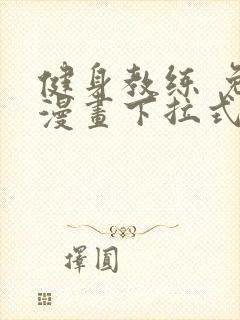 健身教练 免
漫畫下拉式
擇圓